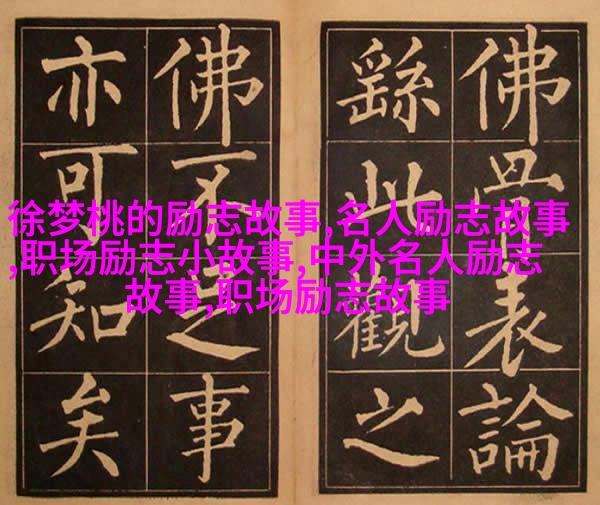 徐梦桃的励志故事,名人励志故事
,职场励志小故事,中外名人励志
故事,职场励志故事
佛骨表論
繇此觀之
佛不足事
亦可知矣